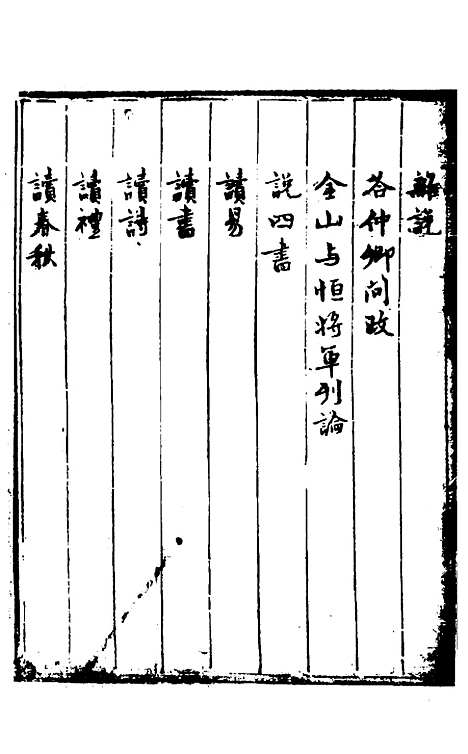 雜說
答仲卿問政
金山与恒將軍別論
說四書
讀易
讀書
讀詩
讀禮
讀春秋